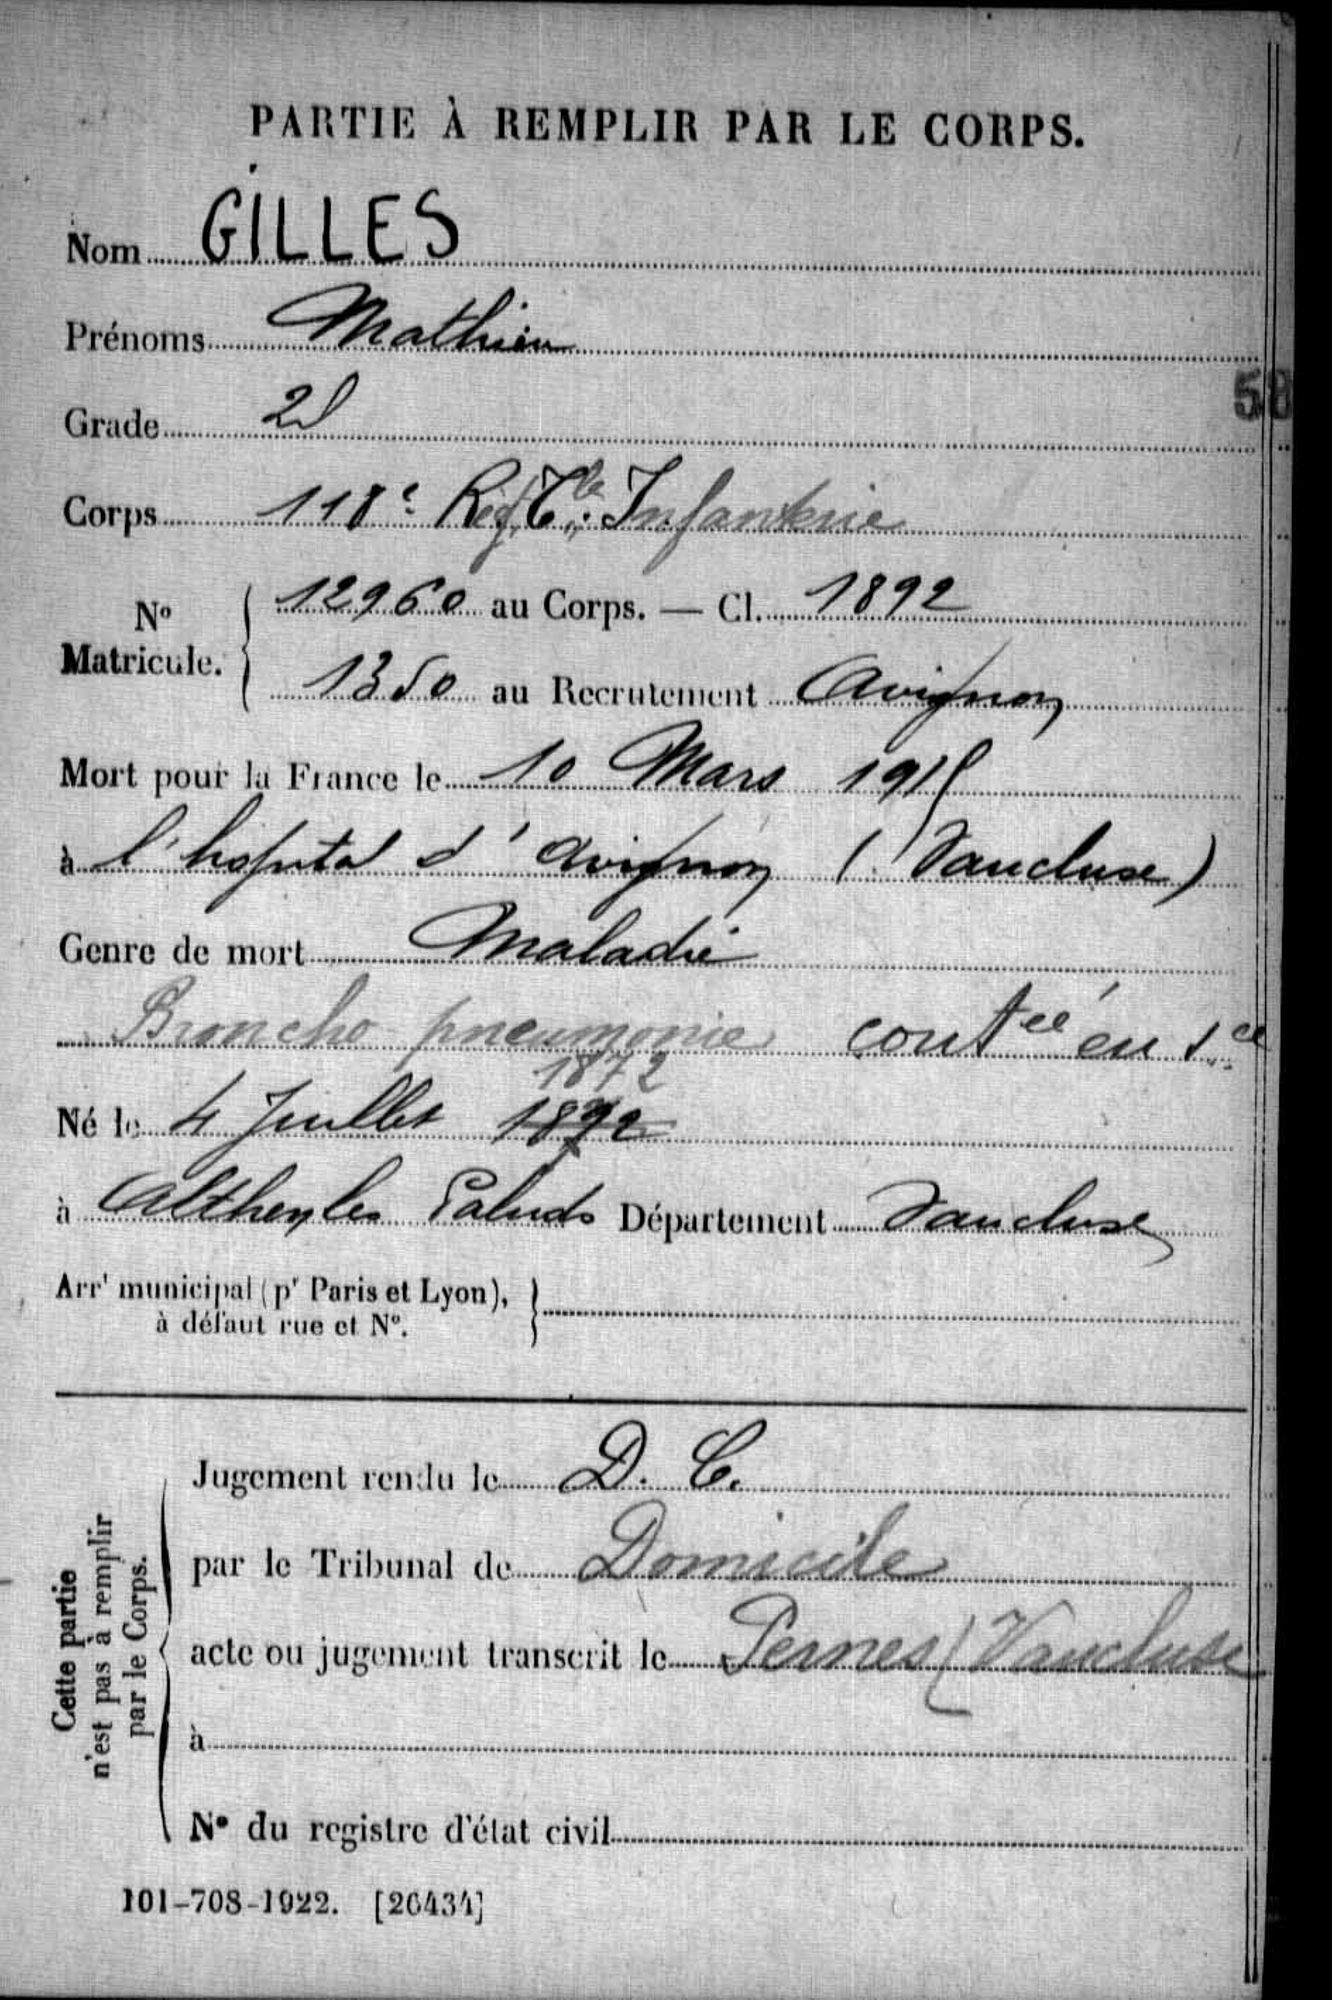 PARTIE À REMPLIR PAR LE CORPS.
Nom GILLES
Prénoms Mathieu
58
Grade 2d
Corps 118e Rég. Tle Infanterie
No Matricule. 12960 au Corps. — Cl. 1892
1350 au Recrutement Avignon
Mort pour la France le 10 Mars 1915
à l'hopital d'Avignon (Vaucluse)
Genre de mort Maladie
Broncho pneumonie contée en sce
1872
Né le 4 Juillet 1892
à Althen les Paluds Département Vaucluse
Arrt municipal (pr Paris et Lyon),
à défaut rue et No.
Cette partie
n'est pas à remplir
par le Corps.
Jugement rendu le D. C.
par le Tribunal de Domicile
acte ou jugement transcrit le Pernes (Vaucluse
à
No du registre d'état civil
101-708-1922. [26434]